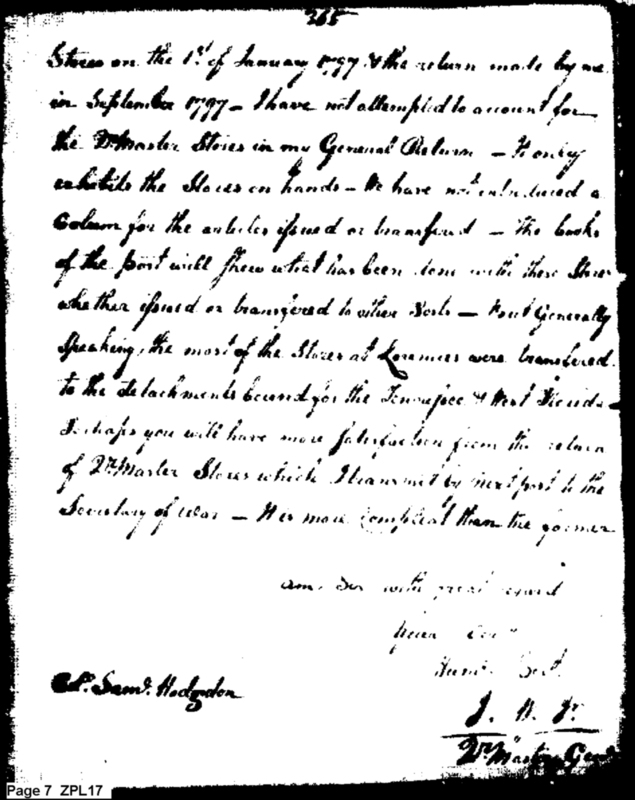 265
Stores on the 1st of January 1797 & the return made by me
in September 1797 – I have not attempted to account for
the Qr Master Stores in my General Return – It only
exhibits the Stores on hands – We have not introduced a
Colum for the articles issued or transferred – The books
of the post will shew what has been done with these Stores
whether issued or transfered to other Posts – But Generally
Speaking, the most of the Stores at were transfered
to the detachments bound for the Tennessee & West Florida –
Perhaps you will have more Satisfaction from the return
of Qr Master Stores which I transmit by next post to the
Secretary of War – It is more compleat than the former
am Sir with great regard
your
Humb Servt
J. W. Jr
Qr Master Genl
Col. Saml. Hodgdon
Page 7 ZPL17